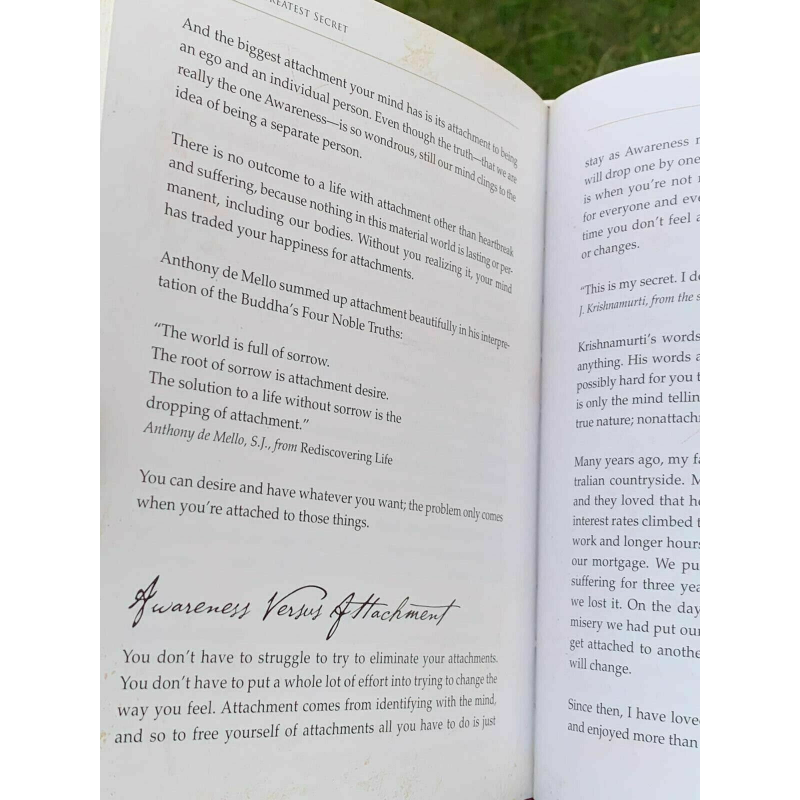 REATEST SECRET
And the biggest attachment your mind has is its attachment to being
an ego and an individual person. Even though the truth—that we are
really the one Awareness—is so wondrous, still our mind clings to the
idea of being a separate person.
There is no outcome to a life with attachment other than heartbreak
and suffering, because nothing in this material world is lasting or per-
manent, including our bodies. Without you realizing it, your mind
has traded your happiness for attachments.
Anthony de Mello summed up attachment beautifully in his interpre-
tation of the Buddha's Four Noble Truths:
"The world is full of sorrow.
The root of sorrow is attachment desire.
The solution to a life without sorrow is the
dropping of attachment."
Anthony de Mello, S.J., from Rediscovering Life
You can desire and have whatever you want; the problem only comes
when you're attached to those things.
Awareness Versus Attachment
You don't have to struggle to try to eliminate your attachments.
You don't have to put a whole lot of effort into trying to change the
way you feel. Attachment comes from identifying with the mind,
and so to free yourself of attachments all you have to do is just
stay as Awareness
will drop one by one
is when you're not
for everyone and
time you don't feel
or changes.
"This is my secret. I
J. Krishnamurti, from the
Krishnamurti's words
anything. His words
possibly hard for you
is only the mind
true nature;
Many years ago, my
tralian countryside.
and they loved that
interest rates climbed
work and longer hours
our mortgage. We
suffering for three
we lost it. On the day
misery we had put our
get attached to
will change.
Since then, I have
and enjoyed more than